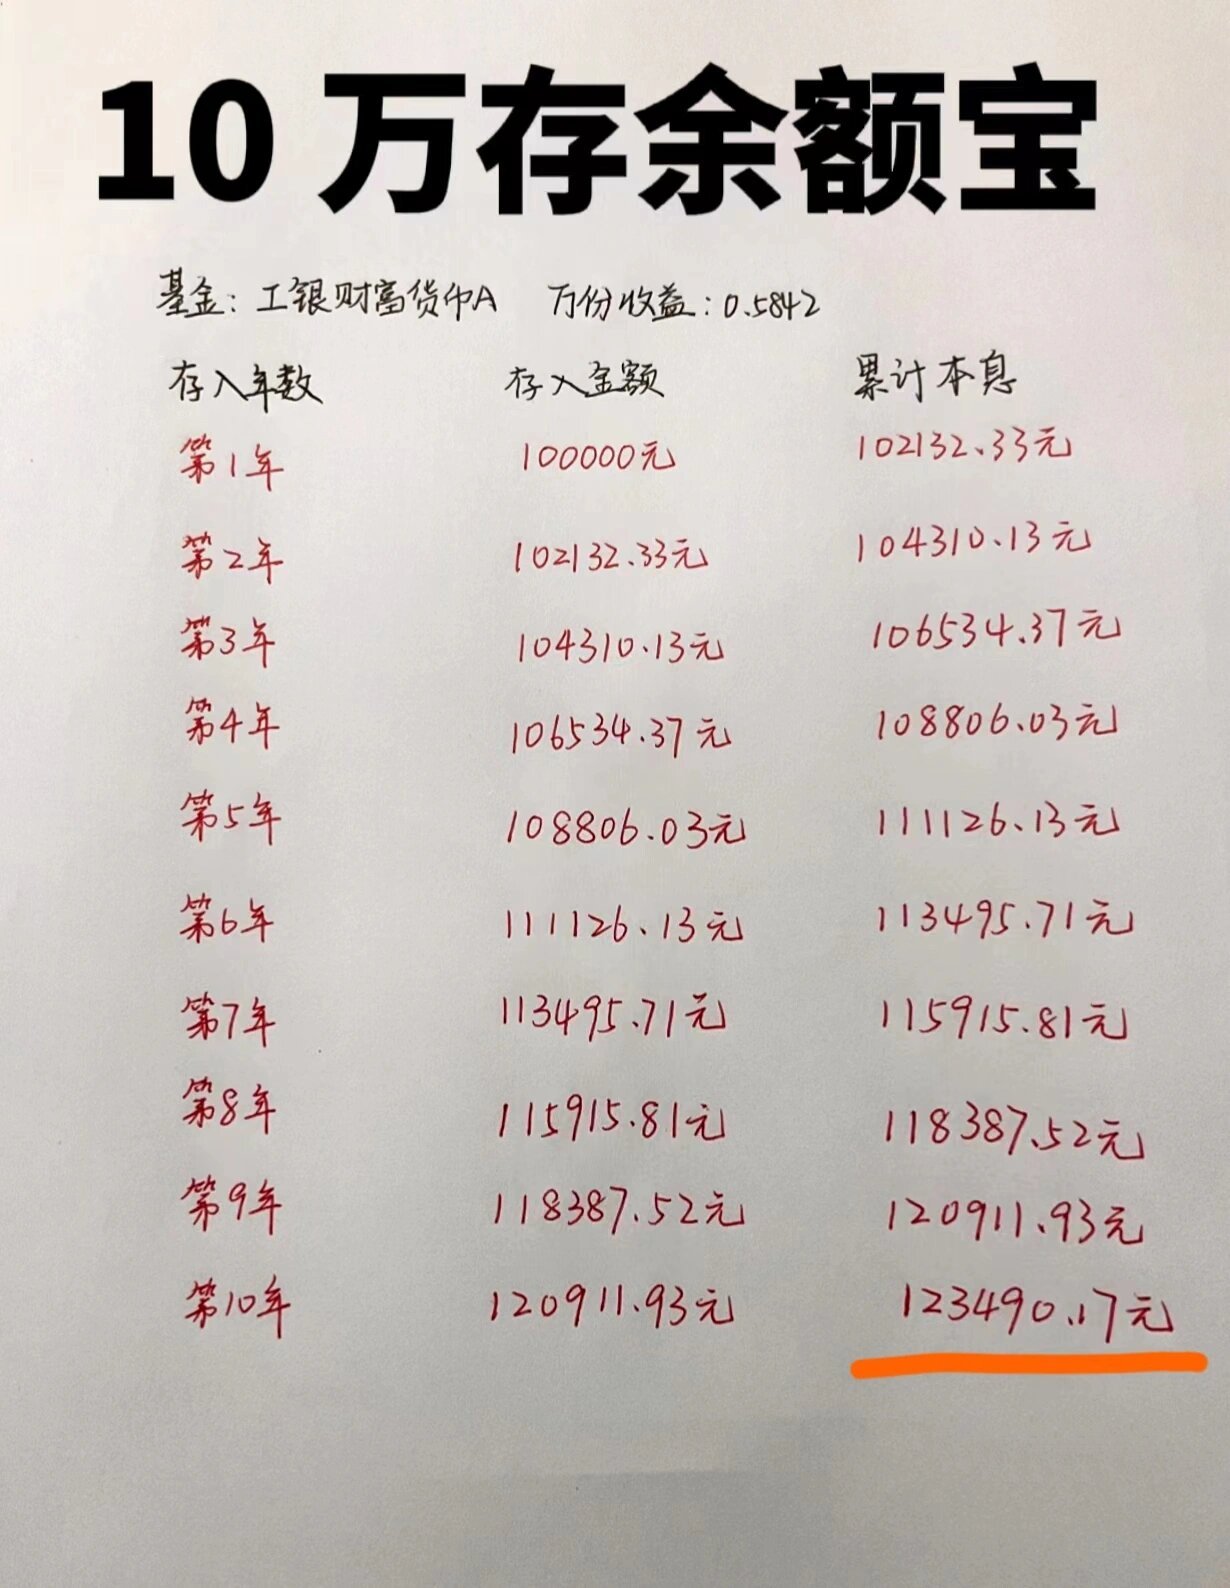 10 万存余额宝
基金：工银财富货币A 万份收益：0.5842
存入年数 存入金额 累计本息
第1年 100000元 102132.33元
第2年 102132.33元 104310.13元
第3年 104310.13元 106534.37元
第4年 106534.37元 108806.03元
第5年 108806.03元 111126.13元
第6年 111126.13元 113495.71元
第7年 113495.71元 115915.81元
第8年 115915.81元 118387.52元
第9年 118387.52元 120911.93元
第10年 120911.93元 123490.17元